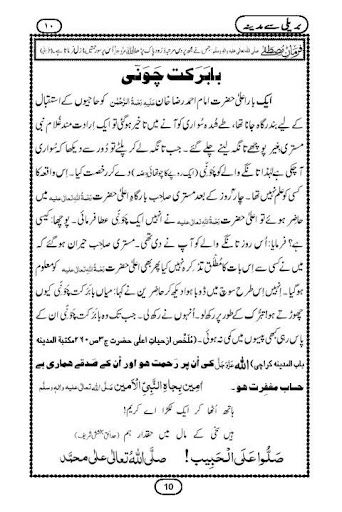 ۱۰
بریلی سے مدینہ
فرمانِ مصطفےٰ صلی اللہ تعالیٰ علیہ والہٖ وسلم جس نے مجھ پر دس مرتبہ دُرُودِ پاک پڑھا اللہ عزوجل اُس پر سو رحمتیں نازل فرماتا ہے۔
بابَرَکت چَوَنّی
ایک بار اعلیٰ حضرت امام احمد رضا خان علیہ رحمۃ الرحمٰن کو حاجیوں کے استقبال
کے لیے بندرگاہ جانا تھا، طے شُدہ سُواری کو آنے میں تاخیر ہو گئی تو ایک اِرادت مند غُلام نبی
مستری بغیر پوچھے تانگہ لینے چلے گئے۔ جب تانگہ لے کر پلٹے تو دُور سے دیکھا کہ سُواری
آ چکی ہے لہٰذا تانگے والے کو چَوَنّی (ایک روپے کا چوتھائی حصّہ) دے کر رخصت کیا۔ اِس واقِعہ کا
کسی کو عِلم نہیں تھا۔ چار روز کے بعد مستری صاحِب بارگاہِ اعلیٰ حضرت رحمۃ اللہ تعالیٰ علیہ میں
حاضِر ہوئے تو اعلیٰ حضرت رحمۃ اللہ تعالیٰ علیہ نے انہیں ایک چَوَنّی عطا فرمائی۔ پوچھا: کیسی
ہے؟ فرمایا: اُس روز تانگے والے کو آپ نے دی تھی۔ مستری صاحِب حیران ہو گئے کہ
میں نے کسی سے اِس بات کا مُطلَق تذکِرہ نہیں کیا پھر بھی اعلیٰ حضرت رحمۃ اللہ تعالیٰ علیہ کو معلوم ہو
گیا۔ انہیں اِس طرح سوچ میں ڈوبا ہوا دیکھ کر حاضِرین نے کہا: میاں بابَرَکت چَوَنّی کیوں
چھوڑتے ہو! تبرُّک کے طور پر رکھ لو۔ اُنہوں نے رکھ لی۔ جب تک وہ بابَرَکت چَوَنّی ان کے
پاس رہی کبھی پیسوں میں کمی نہ ہوئی۔ (مُلَخَّص از حیاتِ اعلیٰ حضرت ج۳ ص۲۶۰ مکتبۃ المدینہ
باب المدینہ کراچی) اللہ عزوجل کی اُن پر رَحمت ہو اور اُن کے صَدقے ہماری بے
حساب مغفِرت ہو۔ اٰمین بِجاہِ النَّبِیِّ الْاَمین صلی اللہ تعالیٰ علیہ والہٖ وسلم
ہاتھ اُٹھا کر ایک ٹکڑا اے کریم!
ہیں سخی کے مال میں حقدار ہم (حدائقِ بخشش شریف)
صَلُّوا عَلَی الْحَبِیب! صلَّی اللہُ تعالیٰ علیٰ محمَّد
10